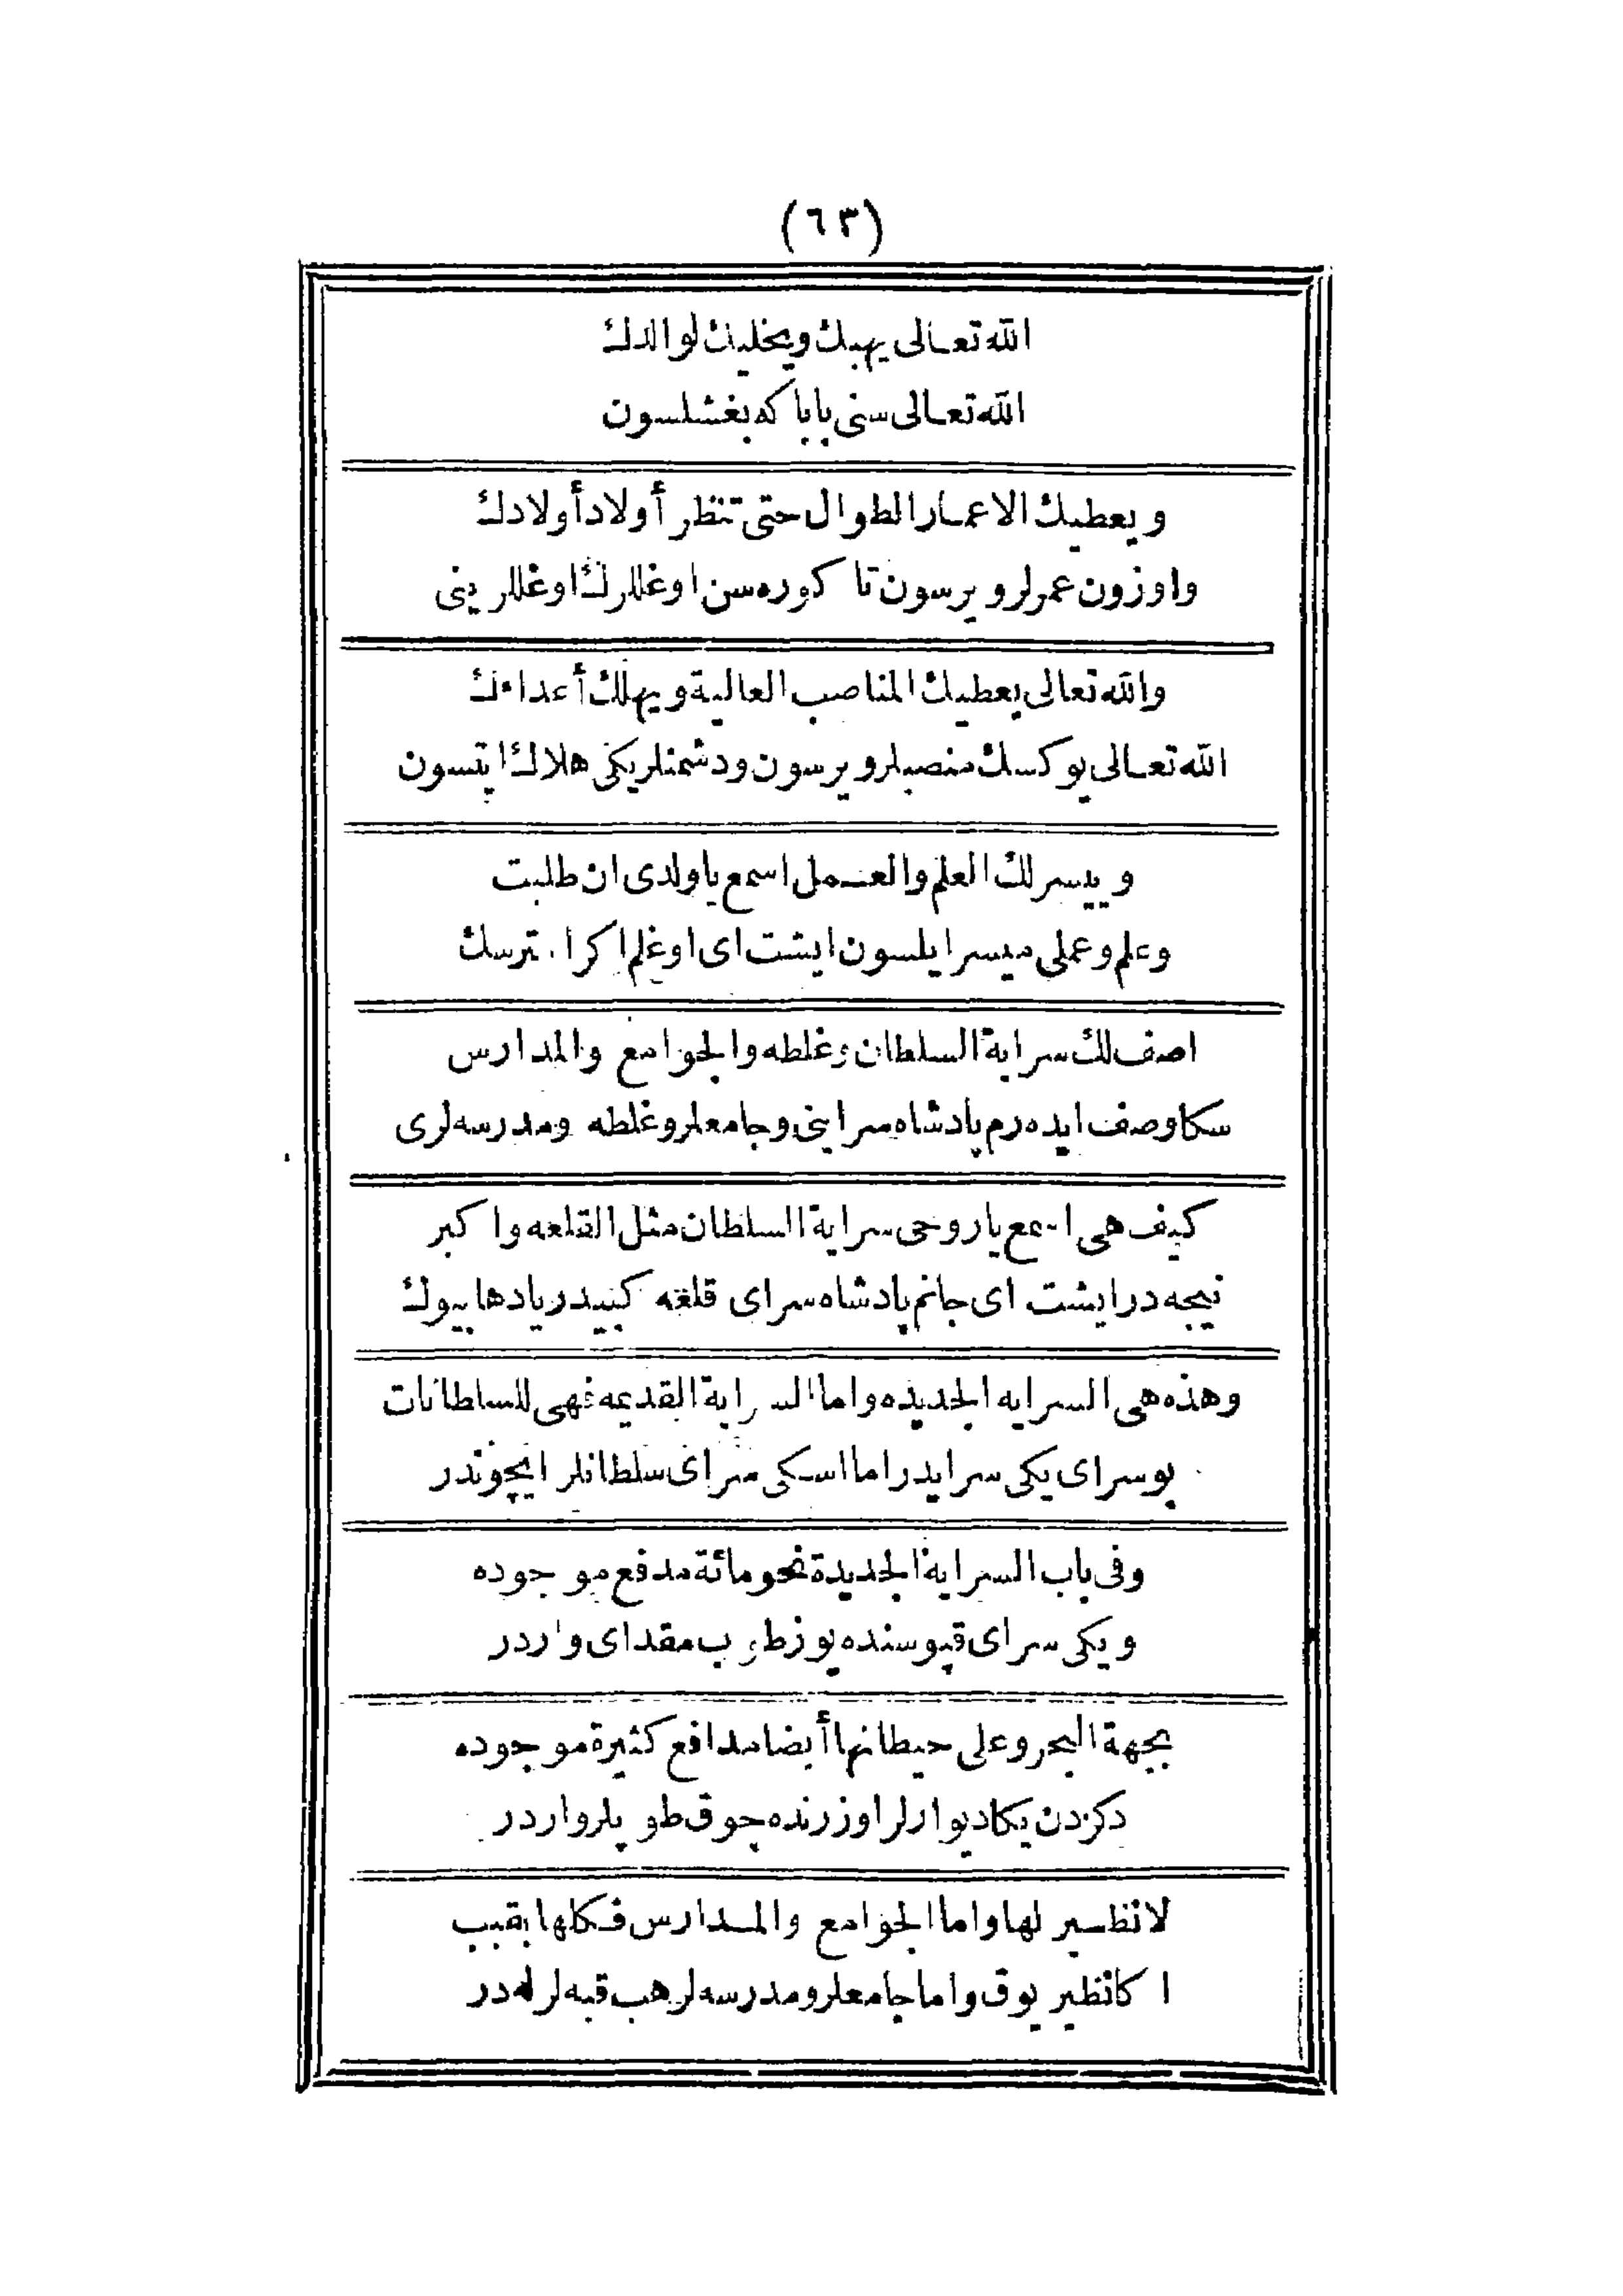 (٦٣)
الله تعالى يهبك ويخليك لوالدك
الله تعالى سنى باباكه بغشلسون
ويعطيك الاعمار الطوال حتى تنظر أولاد أولادك
واوزون عمرلر ويرسون تا كوره سن اوغللرك اوغللرينى
والله تعالى يعطيك المناصب العالية ويهلك أعداءك
الله تعالى يوكسك منصبلر ويرسون ودشمنلريكى هلاك ايتسون
وييسر لك العلم والعمل اسمع ياولدى ان طلبت
وعلم وعملى ميسر ايلسون ايشت اى اوغلم اكر استرسك
اصف لك سراية السلطان وغلطه والجوامع والمدارس
سكا وصف ايده رم پادشاه سراينى وجامعلر وغلطه ومدرسه لرى
كيف هى اسمع ياروحى سراية السلطان مثل القلعه واكبر
نيجه در ايشت اى جانم پادشاه سراى قلعه كبيدر يادها بيوك
وهذه هى السرايه الجديده واما السراية القديمه فهى للسلطانات
بوسراى يكى سرايدر اما اسكى سراى سلطانلر ايچوندر
وفى باب السراية الجديدة نحو مائة مدفع موجوده
ويكى سراى قپوسنده يوز طوپ مقداى واردر
بجهة البحر وعلى حيطانها أيضا مدافع كثيرة موجوده
دكزدن يكا ديوارلر اوزرنده چوق طوپلر واردر
لانظير لها واما الجوامع والمدارس فكلها بقبب
اكا نظير يوق واما جامعلر ومدرسه لر هب قبه لر له در